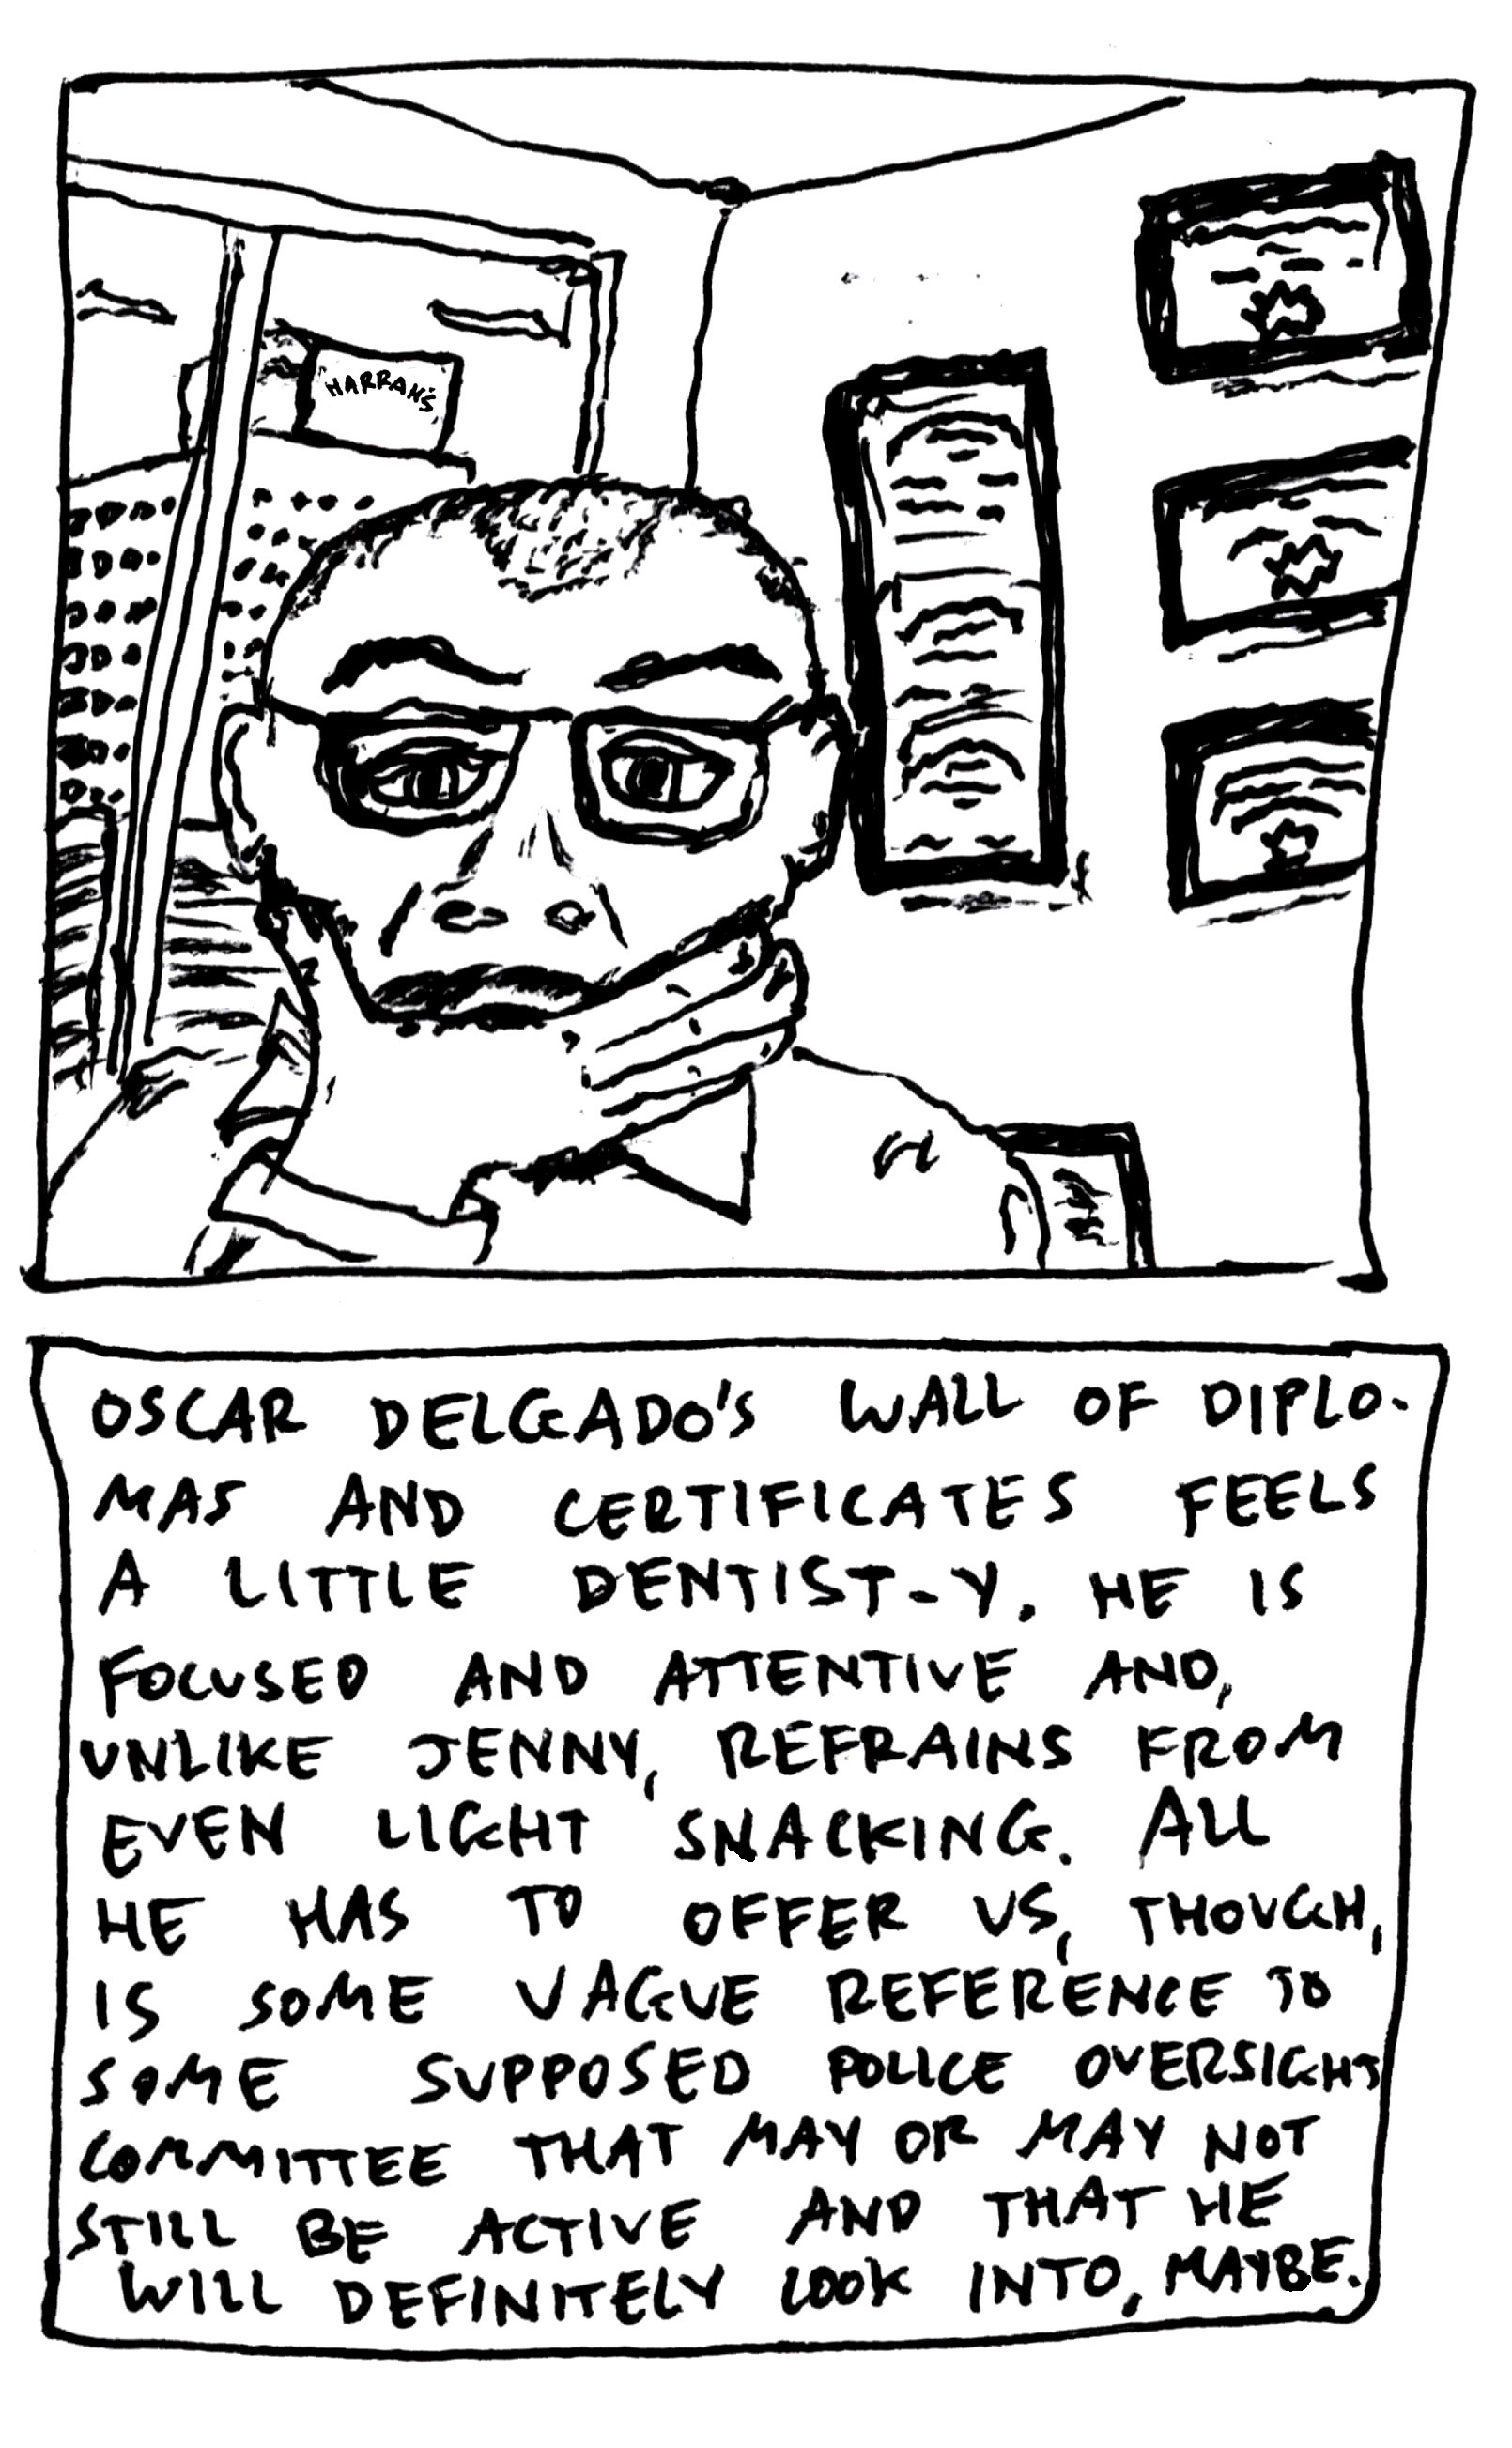 "HARRAH'S"
OSCAR DELGADO'S WALL OF DIPLO-
MAS AND CERTIFICATES FEELS
A LITTLE DENTIST-Y. HE IS
FOCUSED AND ATTENTIVE AND,
UNLIKE JENNY, REFRAINS FROM
EVEN LIGHT SNACKING. ALL
HE HAS TO OFFER US, THOUGH,
IS SOME VAGUE REFERENCE TO
SOME SUPPOSED POLICE OVERSIGHT
COMMITTEE THAT MAY OR MAY NOT
STILL BE ACTIVE AND THAT HE
WILL DEFINITELY LOOK INTO, MAYBE.